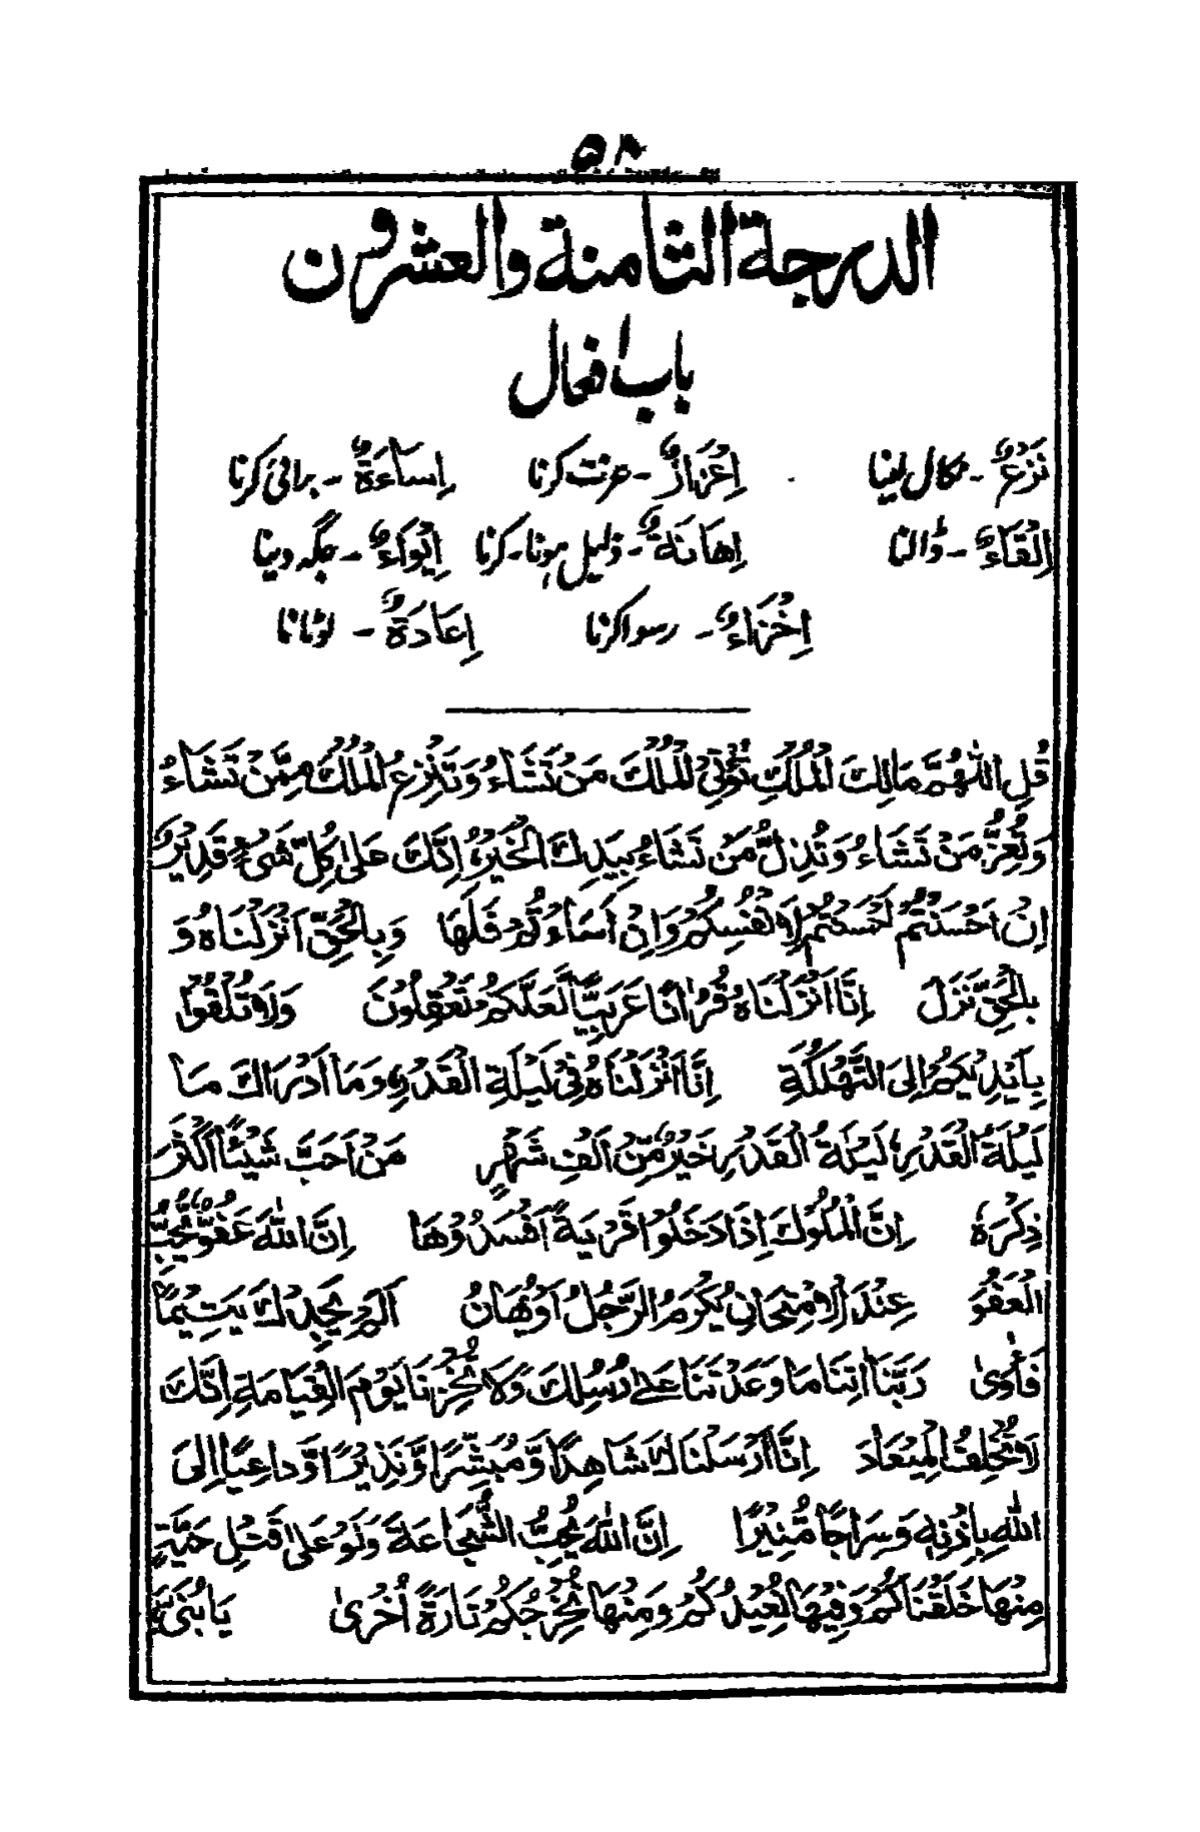 ۵۸
الدرجة الثامنة والعشرون
باب افعال
نَزْعٌ - نکال لینا اِعْزَازٌ - عزت کرنا اِسَاءَةٌ - برائی کرنا
اِلْقَاءٌ - ڈالنا اِهَانَةٌ - ذلیل ہونا - کرنا اِيْوَاءٌ - جگہ دینا
اِخْزَاءٌ - رسوا کرنا اِعَادَةٌ - لوٹانا
قُلِ اللّٰهُمَّ مَالِكَ الْمُلْكِ تُؤْتِي الْمُلْكَ مَنْ تَشَاءُ وَتَنْزِعُ الْمُلْكَ مِمَّنْ تَشَاءُ
وَتُعِزُّ مَنْ تَشَاءُ وَتُذِلُّ مَنْ تَشَاءُ بِيَدِكَ الْخَيْرُ اِنَّكَ عَلٰى كُلِّ شَىْءٍ قَدِيْرٌ
اِنْ اَحْسَنْتُمْ اَحْسَنْتُمْ لِاَنْفُسِكُمْ وَاِنْ اَسَاْتُمْ فَلَهَا وَبِالْحَقِّ اَنْزَلْنَاهُ وَ
بِالْحَقِّ نَزَلَ اِنَّا اَنْزَلْنَاهُ قُرْاٰنًا عَرَبِيًّا لَّعَلَّكُمْ تَعْقِلُوْنَ وَلَا تُلْقُوْا
بِاَيْدِيْكُمْ اِلَى التَّهْلُكَةِ اِنَّا اَنْزَلْنَاهُ فِيْ لَيْلَةِ الْقَدْرِ، وَمَا اَدْرَاكَ مَا
لَيْلَةُ الْقَدْرِ، لَيْلَةُ الْقَدْرِ خَيْرٌ مِّنْ اَلْفِ شَهْرٍ مَنْ اَحَبَّ شَيْئًا اَكْثَرَ
ذِكْرَهٗ اِنَّ الْمُلُوْكَ اِذَا دَخَلُوْا قَرْيَةً اَفْسَدُوْهَا اِنَّ اللّٰهَ عَفُوٌّ يُّحِبُّ
الْعَفْوَ عِنْدَ الْاِمْتِحَانِ يُكْرَمُ الرَّجُلُ اَوْ يُهَانُ اَلَمْ يَجِدْكَ يَتِيْمًا
فَاٰوٰى رَبَّنَا اٰتِنَا مَا وَعَدْتَنَا عَلٰى رُسُلِكَ وَلَا تُخْزِنَا يَوْمَ الْقِيَامَةِ اِنَّكَ
لَا تُخْلِفُ الْمِيْعَادَ اِنَّا اَرْسَلْنَاكَ شَاهِدًا وَّمُبَشِّرًا وَّنَذِيْرًا وَّدَاعِيًا اِلَى
اللّٰهِ بِاِذْنِهٖ وَسِرَاجًا مُّنِيْرًا اِنَّ اللّٰهَ يُحِبُّ الشَّجَاعَةَ وَلَوْ عَلٰى قَتْلِ حَيَّةٍ
مِنْهَا خَلَقْنَاكُمْ وَفِيْهَا نُعِيْدُكُمْ وَمِنْهَا نُخْرِجُكُمْ تَارَةً اُخْرٰى يَا بُنَىَّ